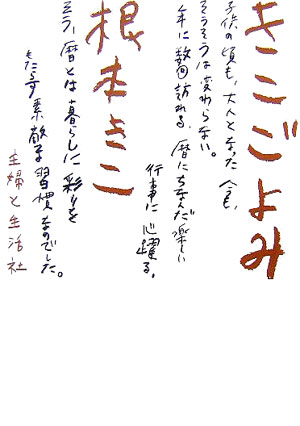 きこごよみ
子供の頃も、大人となった今も、
そうそうは変わらない。
年に数回訪れる、暦にちなんだ楽しい
行事に心躍る。
根本きこ
そう、暦とは暮らしに彩りを
もたらす素敵な習慣なのでした。
主婦と生活社